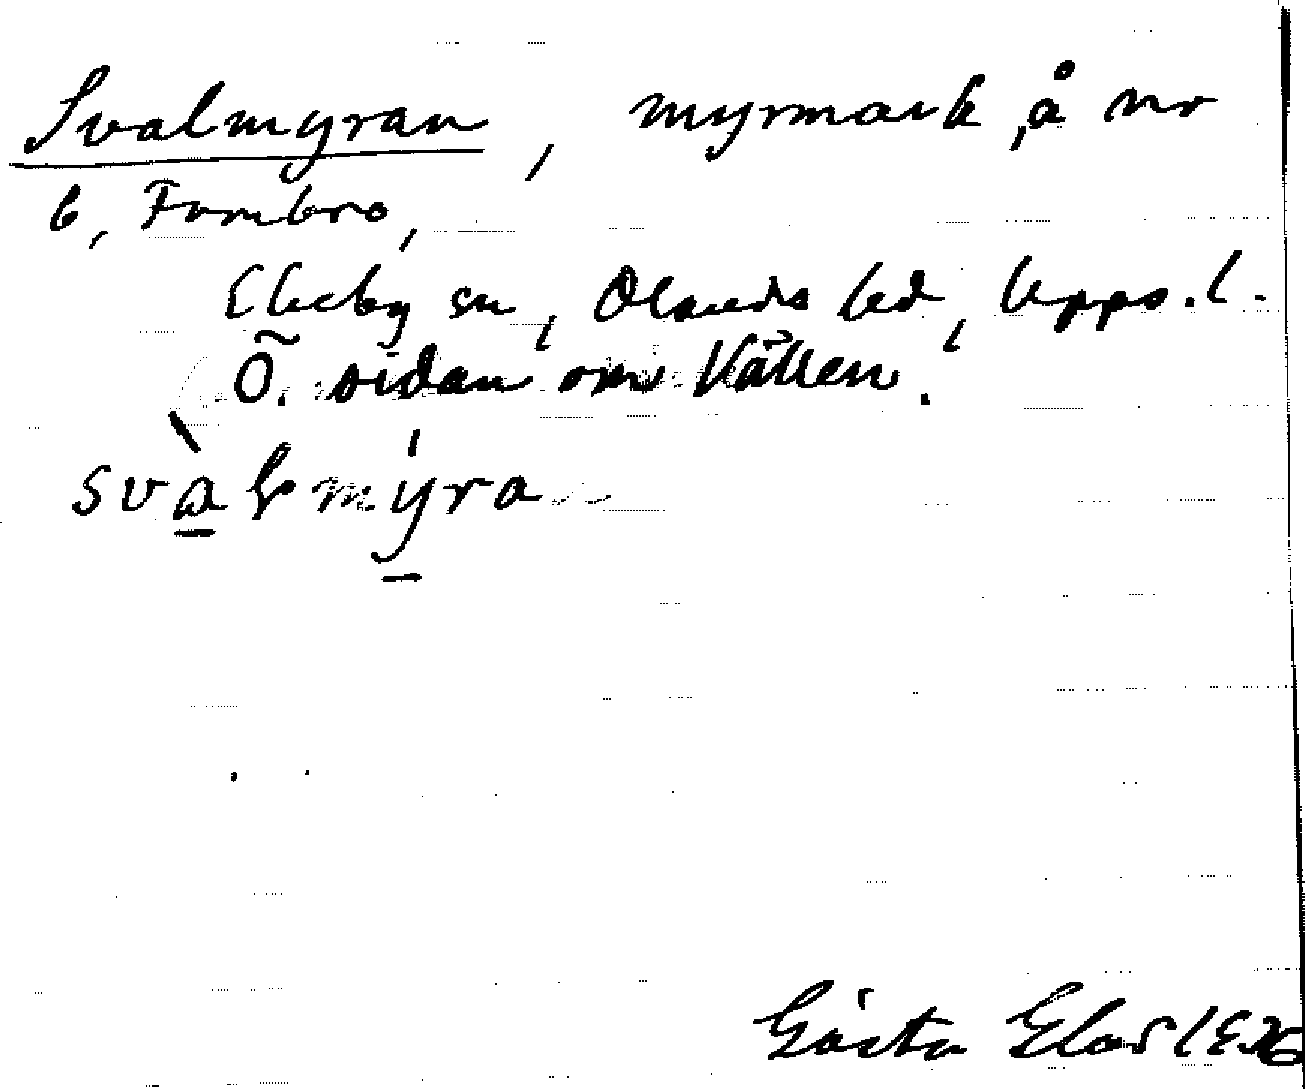 Svalmyran, myrmark, å nr
6, Fombro,
Ekeby sn, Olands hd, Upps. l.
Ö. sidan om Vällen.
svàlmýra
Gösta Elas 1936